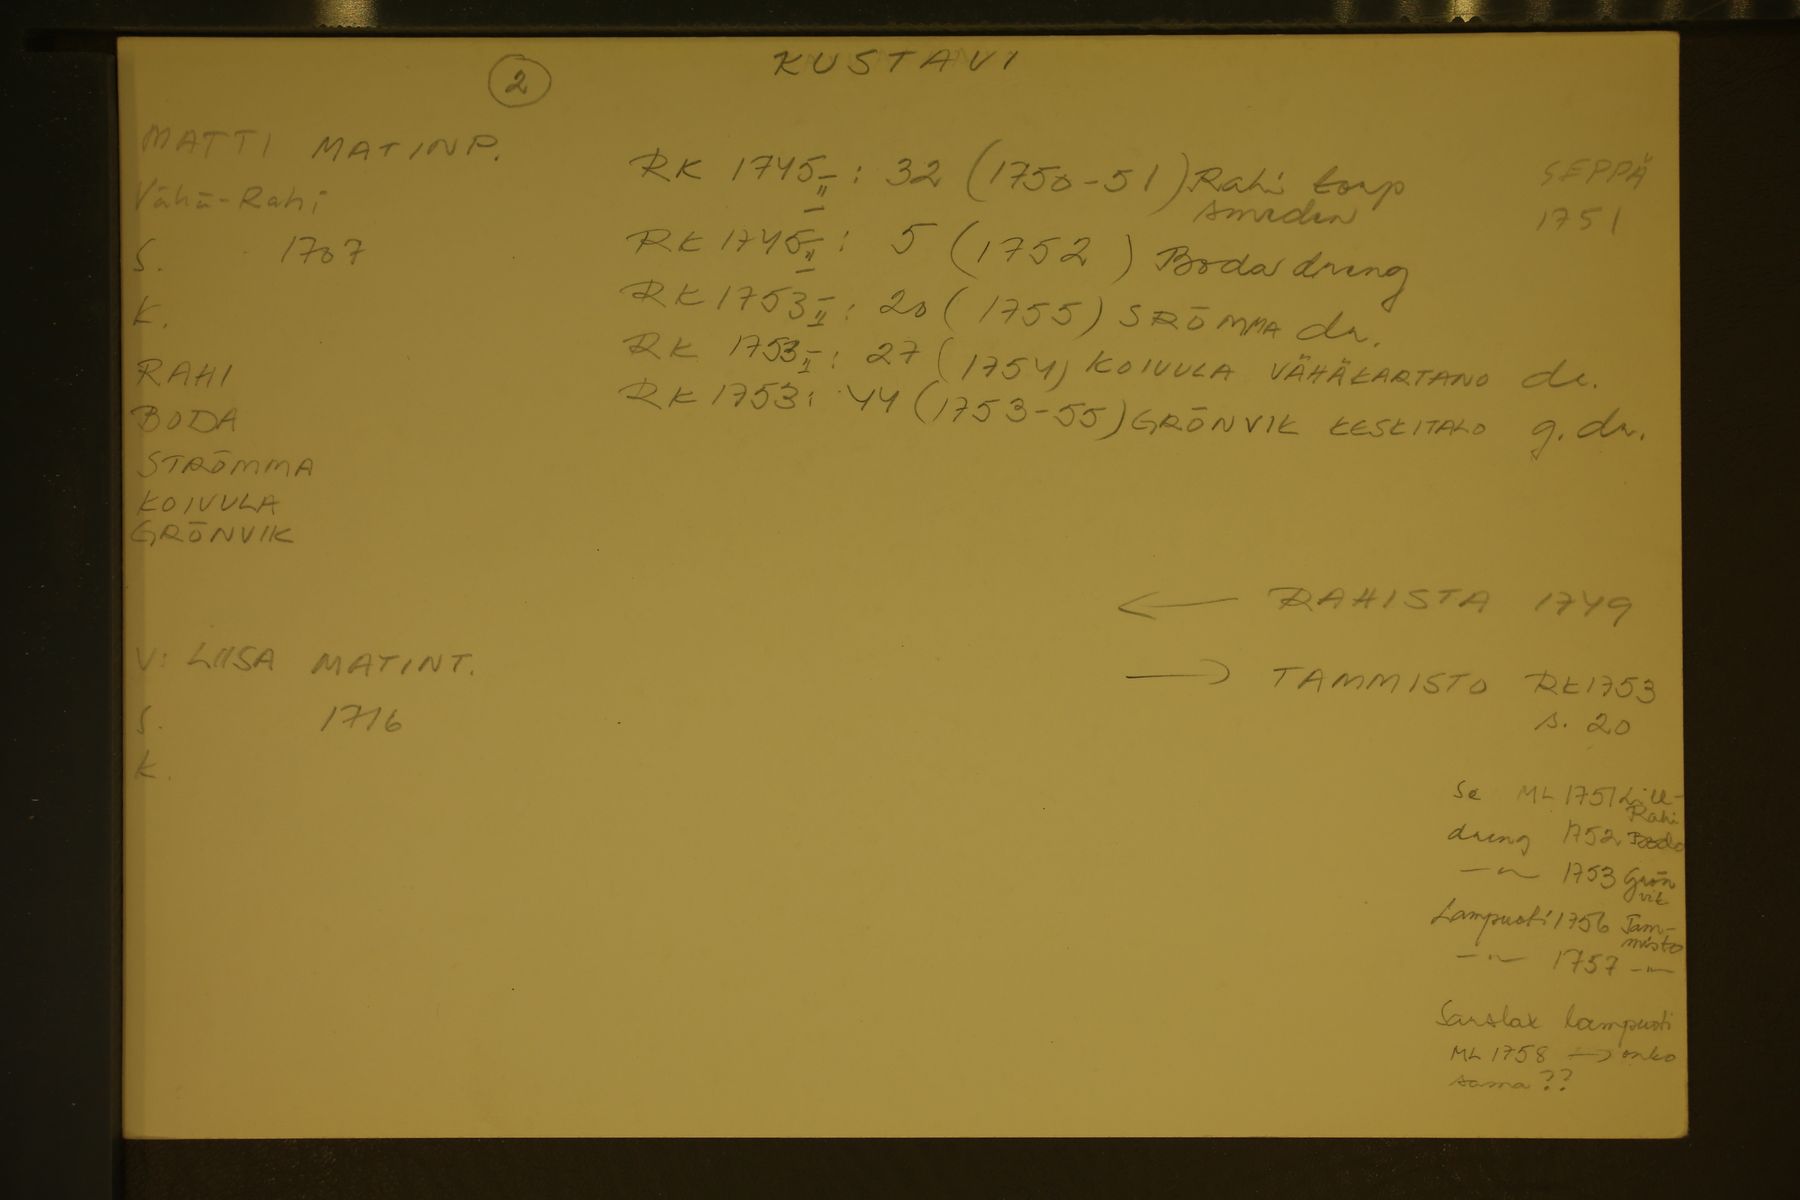 2
KUSTAVI
MATTI MATINP.
Vähä-Rahi
S. 1707
K.
RAHI
BODA
STRÖMMA
KOIVULA
GRÖNVIK
RK 1745 II : 32 (1750-51) Rahi torp
smeden
RK 1745 II : 5 (1752) Boda dreng
RK 1753 II : 20 (1755) SRÖMMA dr.
RK 1753 II : 27 (1754) KOIVULA VÄHÄKARTANO dr.
RK 1753 : 44 (1753-55) GRÖNVIK KESKITALO g. dr.
SEPPÄ
1751
← RAHISTA 1749
→ TAMMISTO RK 1753
s. 20
V: LIISA MATINT.
S. 1716
K.
Se ML 1751 Lill-
Rahi
dreng 1752 Boda
—"— 1753 Grön
vik
Lampuoti 1756 Tam-
misto
—"— 1757 —"—
Sarslax lampuoti
ML 1758 → onko
sama ??